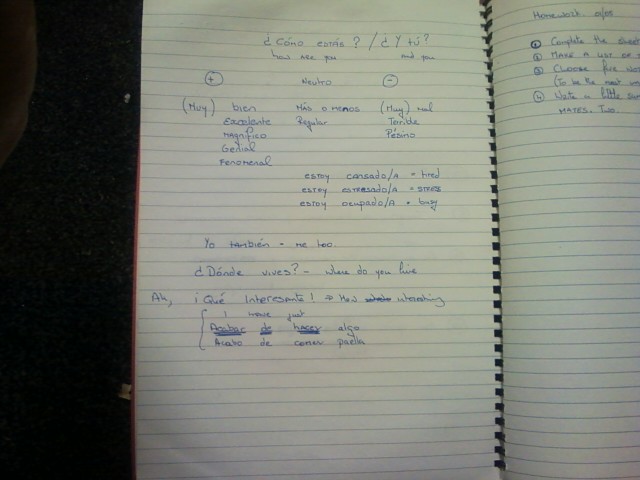 ¿Cómo estás? / ¿Y tú?
how are you and you
+ Neutro -
(Muy) bien Más o menos (Muy) mal
Excelente Regular Terrible
Magnífico Pésimo
Genial
Fenomenal
estoy cansado/A = tired
estoy estresado/A = STRESS
estoy ocupado/A = busy
Yo también - me too.
¿Dónde vives? - where do you live
Ah, ¡Qué interesante! → How interesting
I have just
Acabar de hacer algo
Acabo de comer paella
Homework
1 Complete the sheet
2 Make a list of
3 Choose five
(To be the most
4 Write a little
MATES. Two